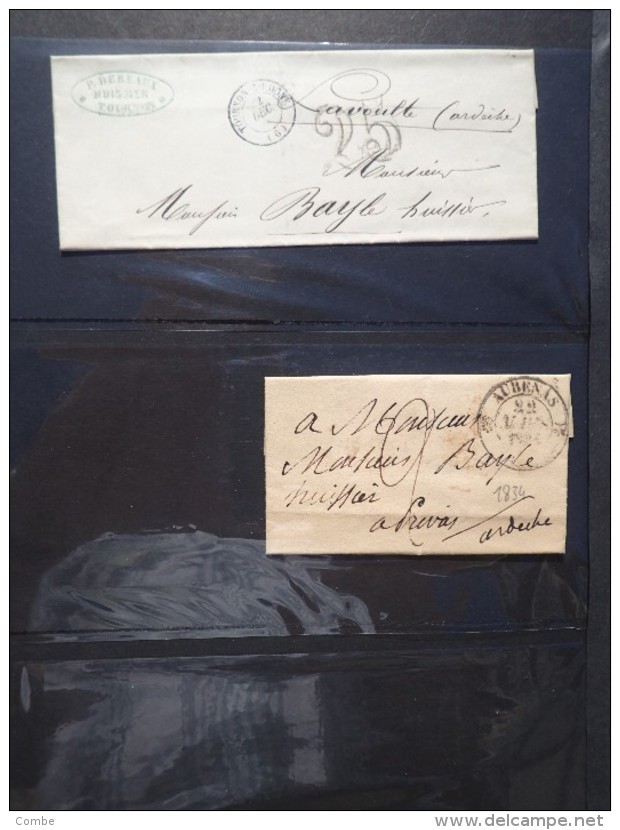 P. DEBEAUX
HUISSIER
TOURNON
TOURNON
1
DEC
(6)
25
Lavoulte (ardèche)
Monsieur
Monsieur Bayle huissier,
AUBENAS
22
a Monsieur
Monsieur Bayle
huissier
a Privas
ardeche
1834
Combe
www.delcampe.net